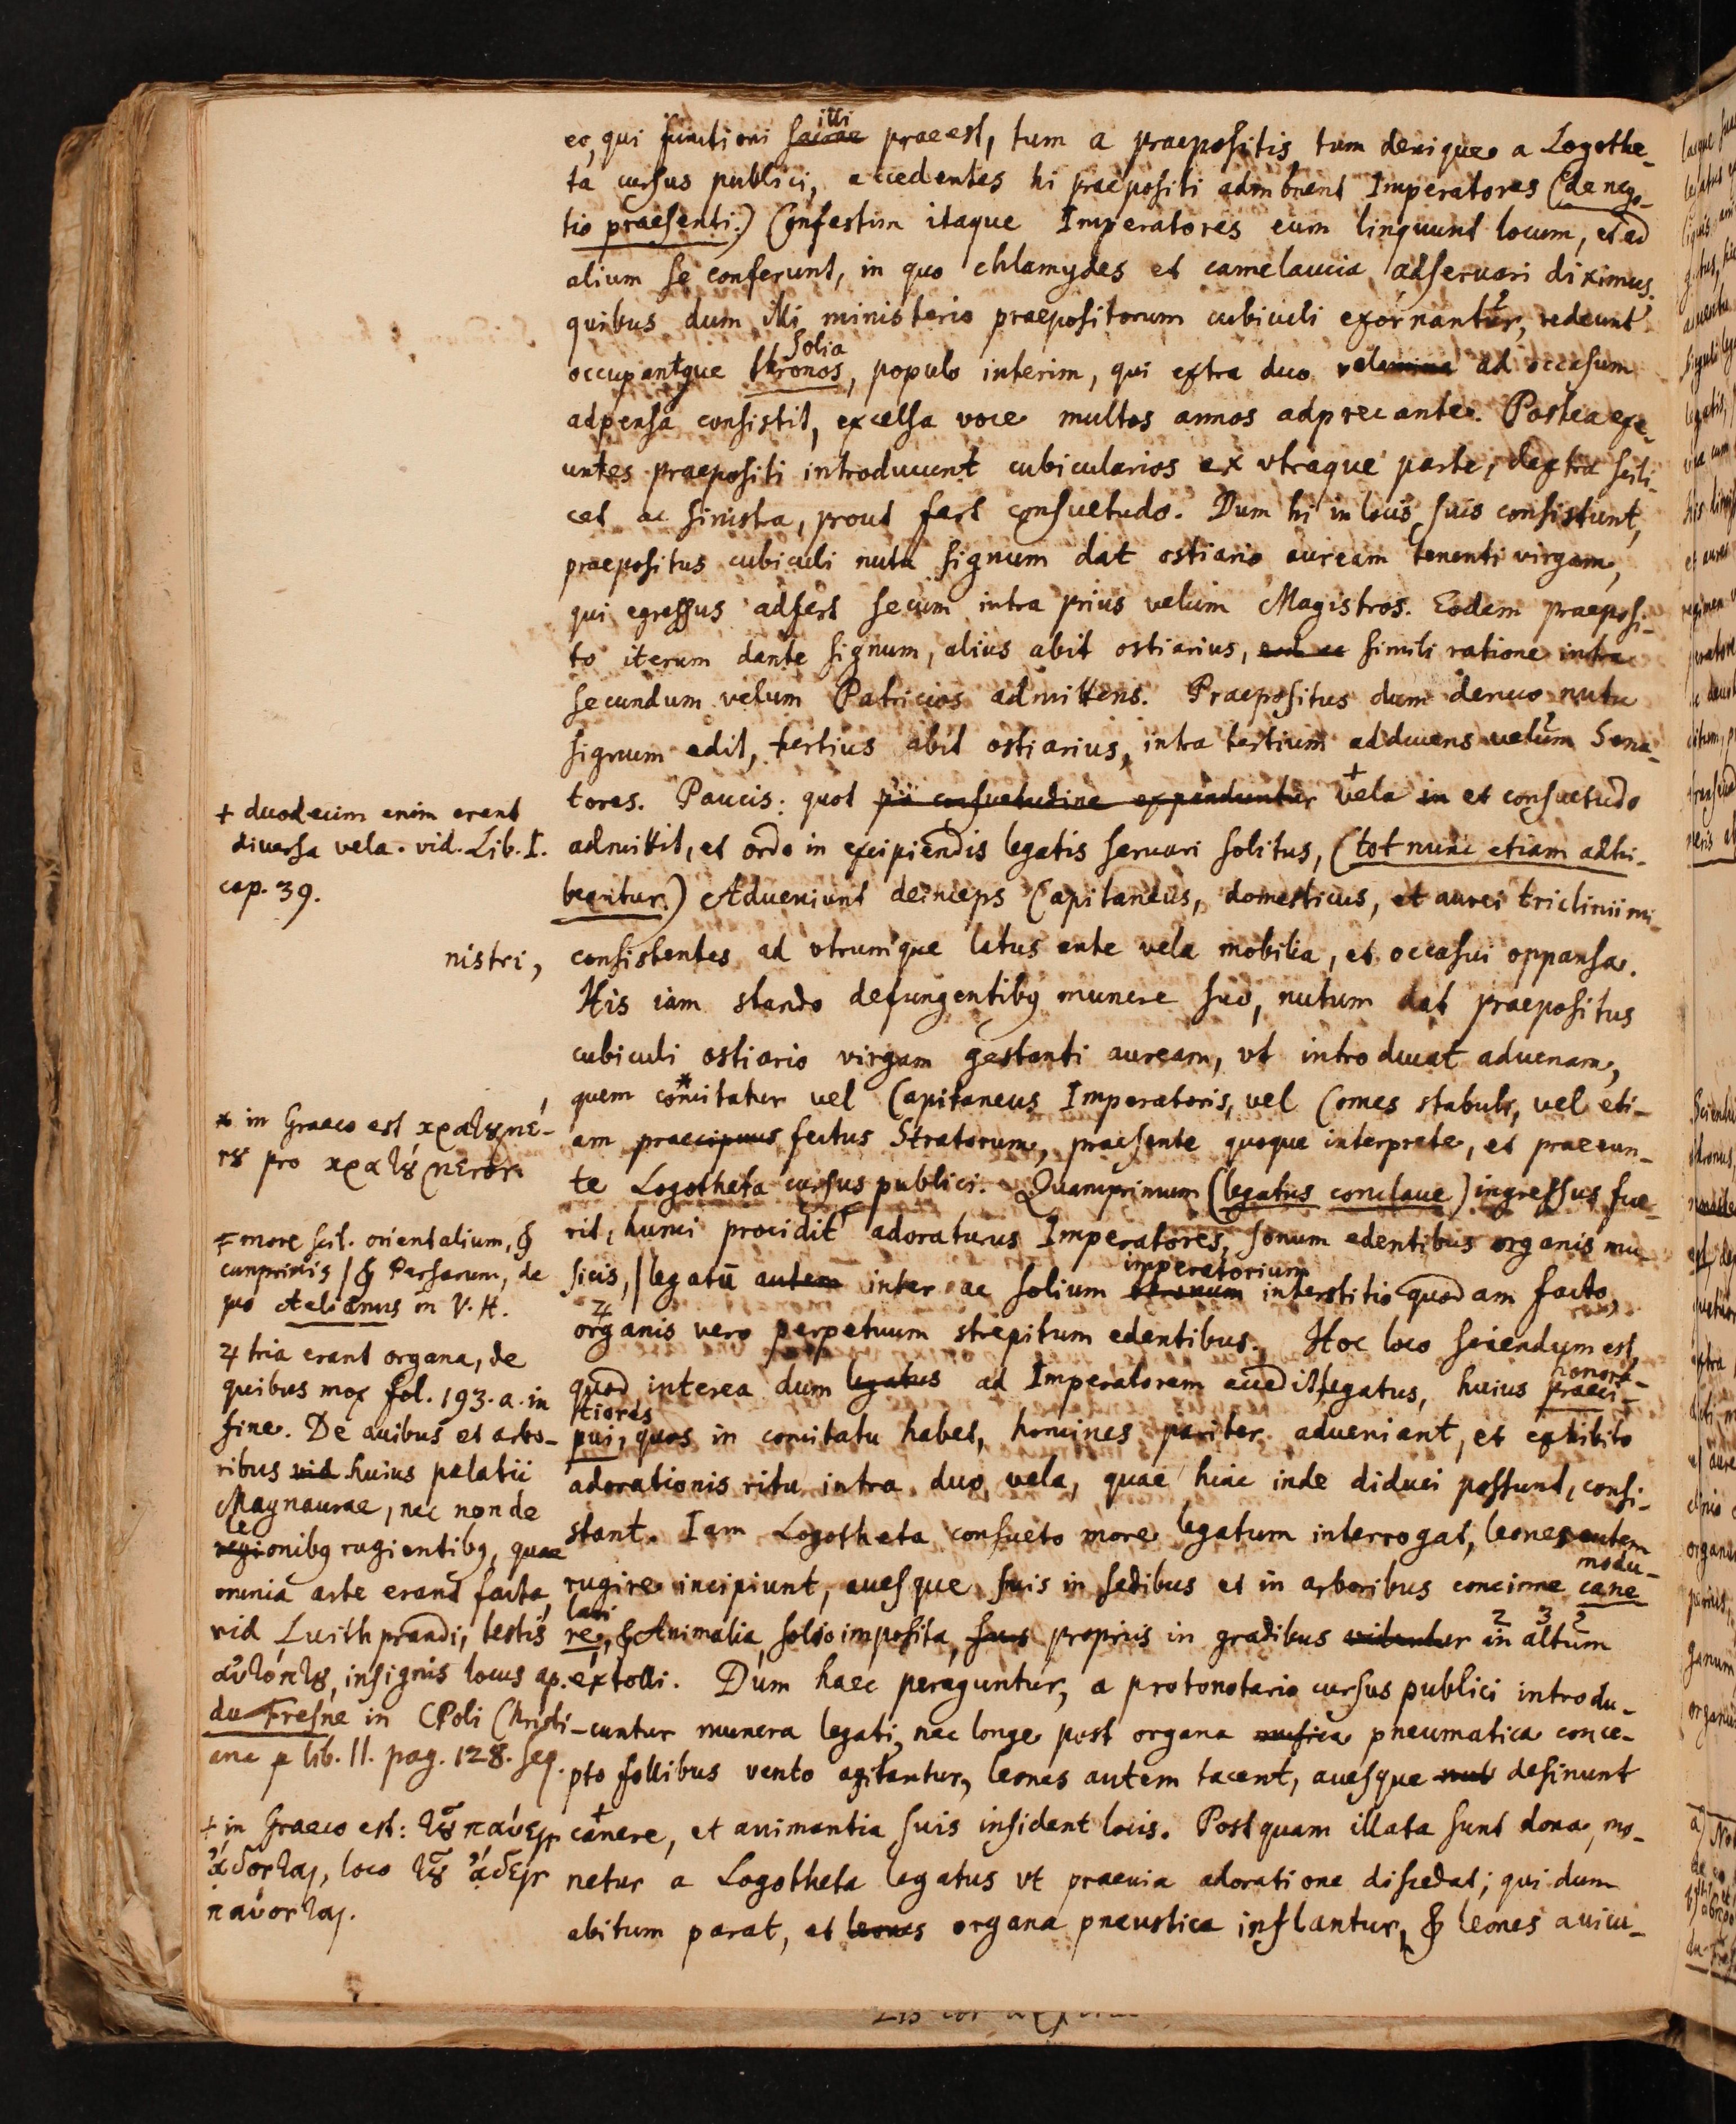 eo, qui functioni illi praeest, tum a praepositis, tum denique a Logothe-
ta cursus publici, accedentes hi praepositi admonent Imperatores (de nego-
tio praesenti.) Confestim itaque Imperatores eum linquunt locum, et ad
alium se conferunt, in quo chlamydes et camelaucia adseruari diximus.
quibus dum illi ministerio praepositorum cubiculi exornantur, redeunt
solia
occupantque thronos, populo interim, qui extra duo velamina ad occasum
adpensa consistit, excelsa voce multos annos adprecante. Postea exe-
untes praepositi introducunt cubicularios ex vtraque parte, dextra scili-
cet ac sinistra, prout fert consuetudo. Dum hi in locis suis consistunt,
praepositus cubiculi nutu signum dat ostiario auream tenenti virgam,
qui egressus adfert secum intra prius velum Magistros. Eodem praeposi-
to iterum dante signum, alius abit ostiarius, simili ratione intra
secundum velum Patricios admittens. Praepositus dum denuo nutu
signum edit, tertius abit ostiarius, intra tertium adducens velum Sena-
tores. Paucis: quot pii consuetudine expanduntur + vela in et consuetudo
admittit, et ordo in excipiendis legatis seruari solitus, (tot nunc etiam adhi-
bentur.) Adueniunt deinceps Capitaneus, domesticus, et aurei triclinii mi-
nistri, consistentes ad vtrumque latus ante vela mobilia, et occasui oppansa.
His iam stando defungentibq munere suo, nutum dat praepositus
cubiculi ostiario virgam gestanti auream, vt introducat aduenam,
quem * comitatur vel Capitaneus Imperatoris, vel Comes stabuli, vel eti-
am praecipuus fectus Stratorum, praesente quoque interprete, et praeeun-
te Logotheta cursus publici. Quamprimum (legatus conclaue) ingressus fue-
rit, humi procidit adoraturus Imperatores, sonum edentibus organis mu-
sicis, legatū autem inter ac solium thronum imperatorium interstitio quodam facto,
organis vero perpetuum strepitum edentibus. Hoc loco sciendum est,
quod interea dum legatus ad Imperatorem accedit legatus, huius praeci- honora-
tiores
pui, quos in comitatu habet, homines pariter adueniant, et exhibito
adorationis ritu intra duo vela, quae hinc inde diduci possunt, consi-
stant. Iam Logotheta consueto more legatum interrogat, leones autem
rugire incipiunt, auesque suis in sedibus et in arboribus concinne cane modu-
lari
re, & Animalia solio imposita, suis propriis in gradibus videntur in altum
extolli. Dum haec peraguntur, a protonotario cursus publici introdu-
cuntur munera legati, nec longe post organa musica pneumatica conce-
pto follibus vento agitantur, leones autem tacent, auesque desinunt
+ canere, et animantia suis insident locis. Postquam illata sunt dona, mo-
netur a Logotheta legatus vt praeuia adoratione discedat; qui dum
abitum parat, et leones organa pneustica inflantur, & leones auicu-
+ duodecim enim erant
diuersa vela. vid. Lib. I.
cap. 39.
* in Graeco est κρατȣμέ-
νȣ pro κρατȣμενον.
more scil. orientalium, &
cumprimis & Persarum, de
quo Aelianus in V. H.
♃ tria erant organa, de
quibus mox fol. 193. a. in
fine. De auibus et arbo-
ribus vid huius palatii
Magnaurae, nec non de
le
regionibq rugientibq, quae
omnia arte erant facta,
vid Luithprandi, testis
αὐτόπτȣ, insignis locus ap.
du Fresne in CPoli Christi-
ana lib. II. pag. 128. seq.
+ in Graeco est: τȣ͂ παύειν
ᾄδονται, loco τȣ͂ ᾄδειν
παύονται.